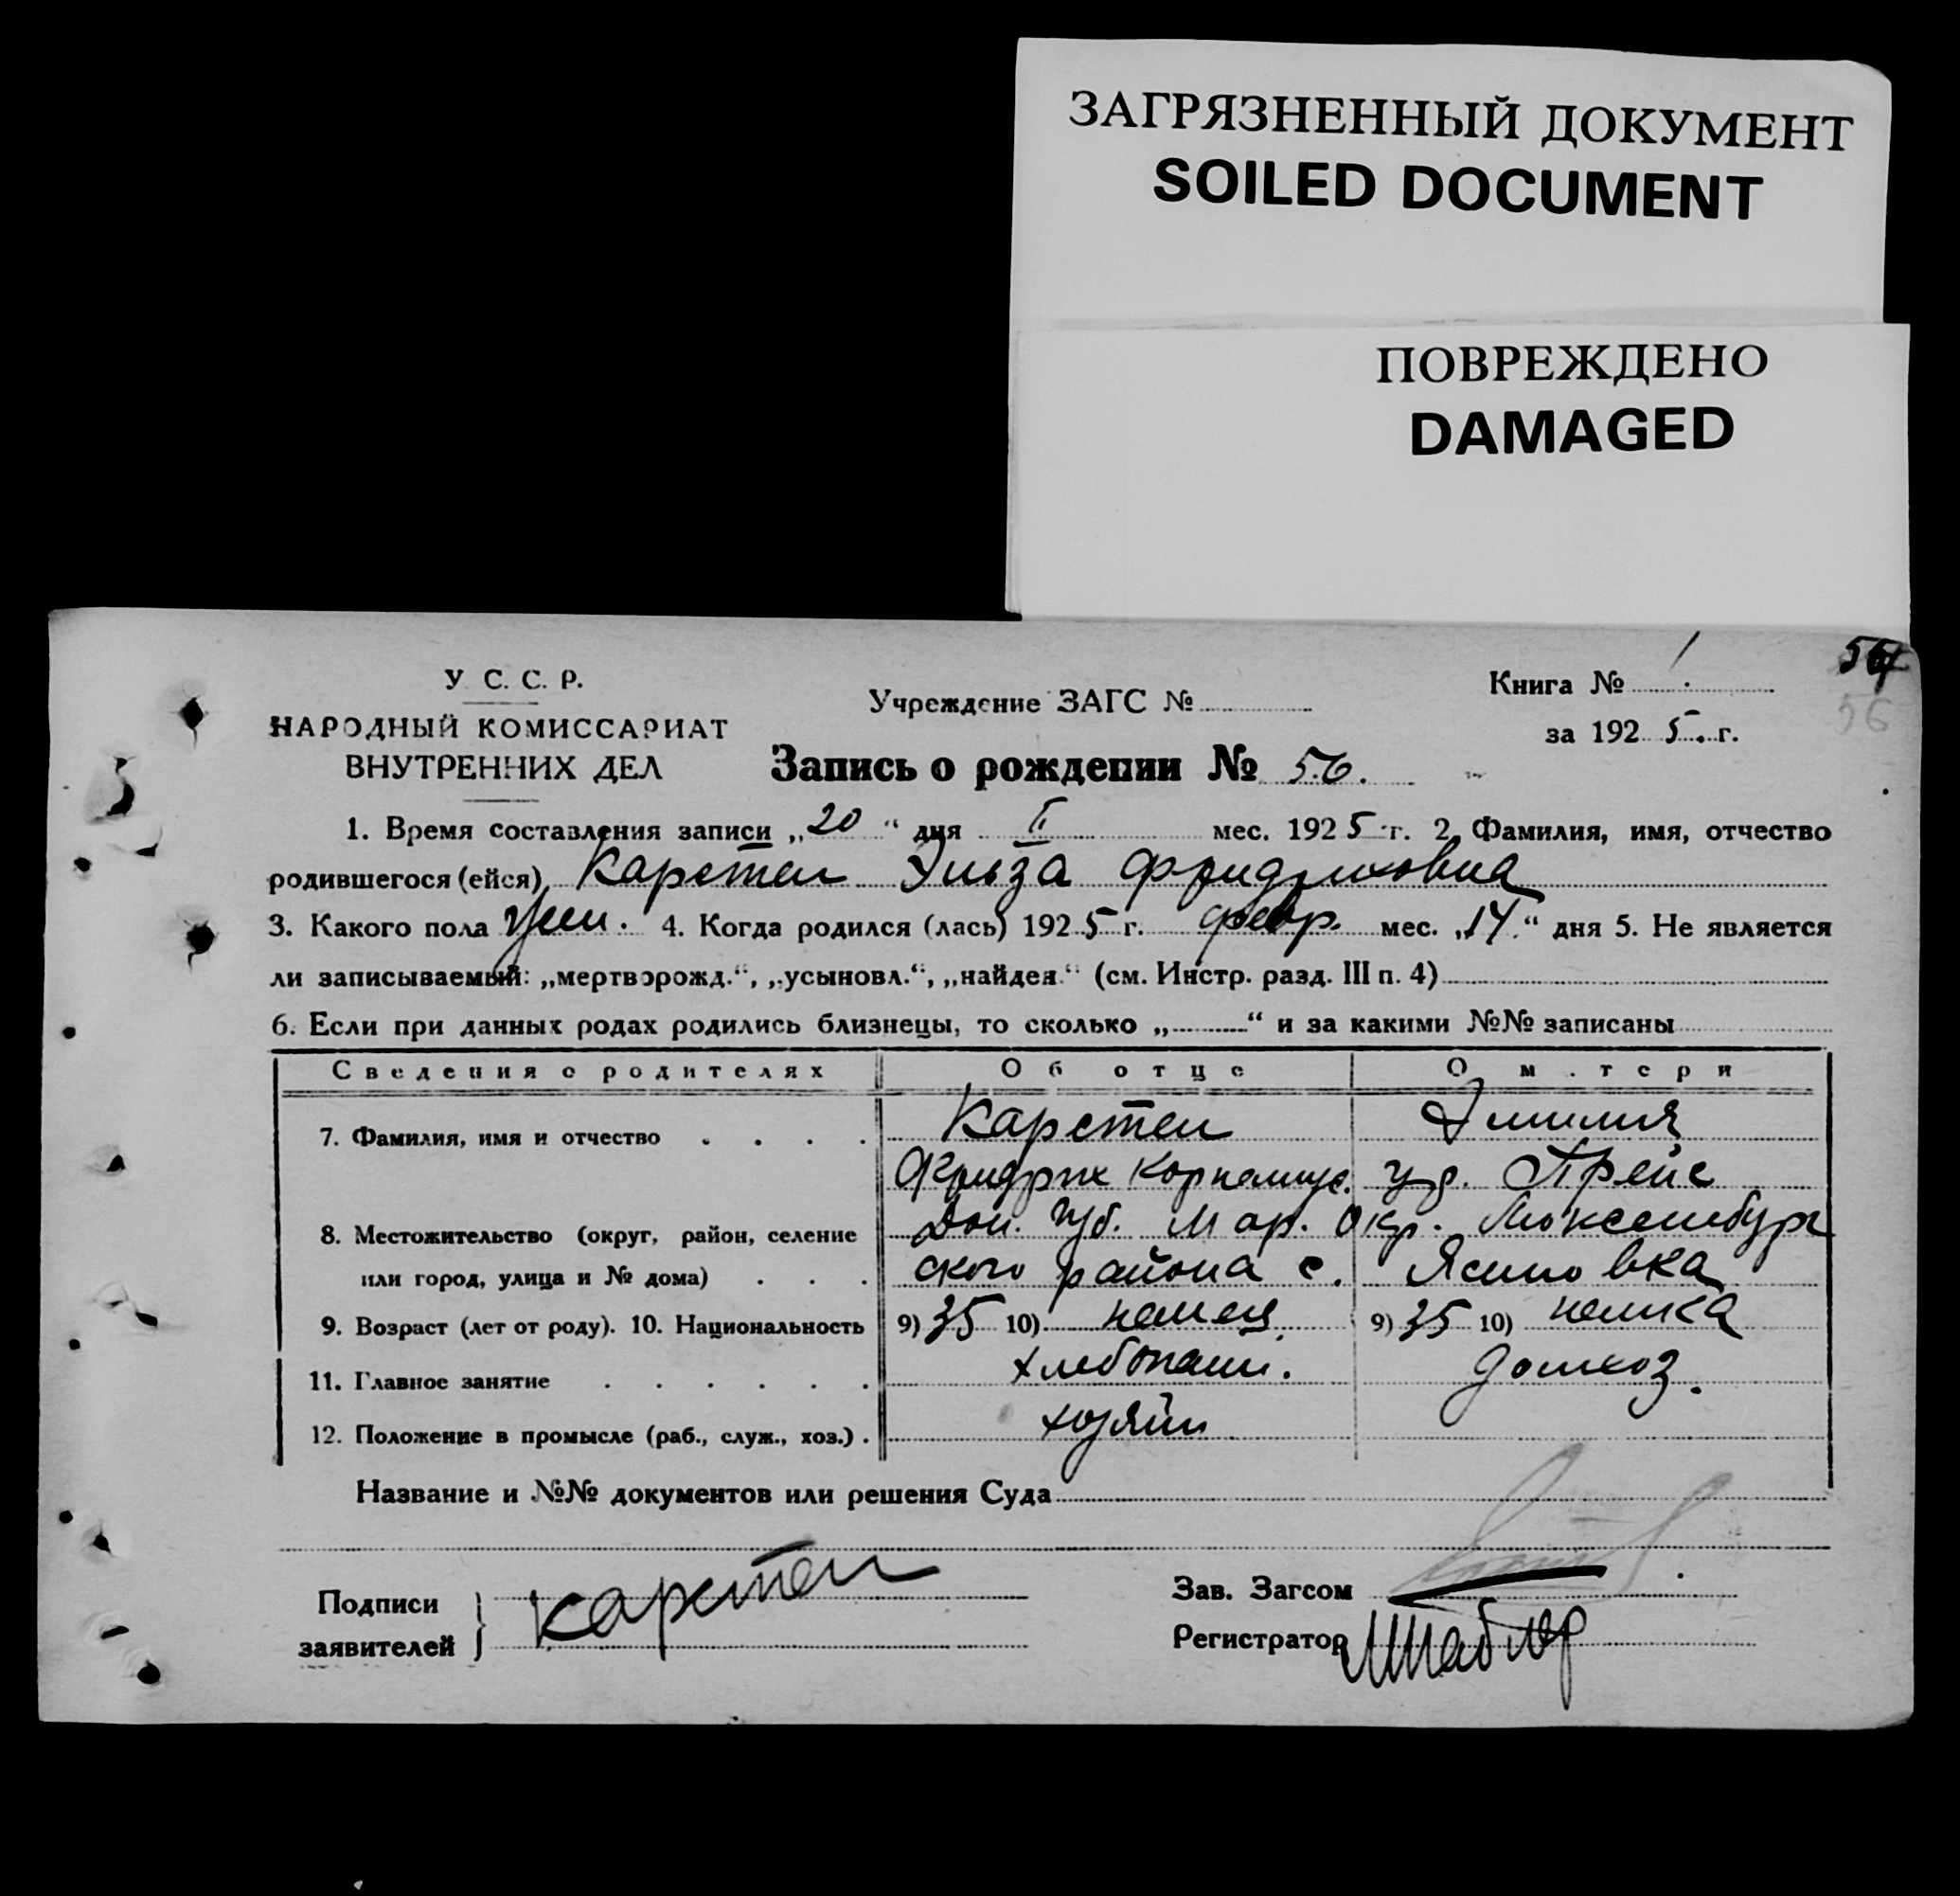 ЗАГРЯЗНЕННЫЙ ДОКУМЕНТ
SOILED DOCUMENT
ПОВРЕЖДЕНО
DAMAGED
56
У С. С. Р.
НАРОДНЫЙ КОМИССАРИАТ
ВНУТРЕННИХ ДЕЛ
Учреждение ЗАГС №
Книга № 1
за 1925 г.
Запись о рождении № 56.
1. Время составления записи „20“ дня II мес. 1925 г. 2. Фамилия, имя, отчество
родившегося (ейся) Карстен Эльза Фридриховна
3. Какого пола жен. 4. Когда родился (лась) 1925 г. февр. мес. „14“ дня 5. Не является
ли записываемый: „мертворожд.“, „усыновл.“, „найден.“ (см. Инстр. разд. III п. 4)
6. Если при данных родах родились близнецы, то сколько „ “ и за какими №№ записаны
Сведения о родителях Об отце О м.тери
7. Фамилия, имя и отчество Карстен Эмилия
Фридрих Корнелиус. ур. Прейс
8. Местожительство (округ, район, селение Дон. Губ. Мар. Окр. Люксембург
или город, улица и № дома) ского района с. Ясиновка
9. Возраст (лет от роду). 10. Национальность 9) 35 10) немец 9) 35 10) немка
11. Главное занятие хлебопаш. домхоз.
12. Положение в промысле (раб., служ., хоз.) хозяин
Название и №№ документов или решения Суда
Подписи
заявителей } Карстен
Зав. Загсом
Регистратор